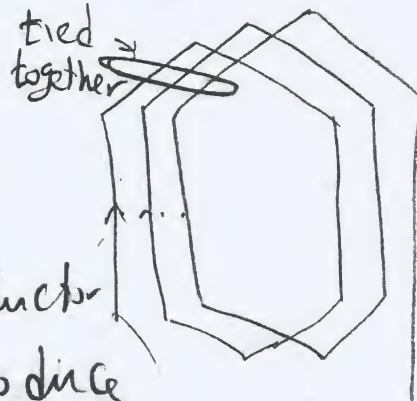 tied
together
uctor
o duce